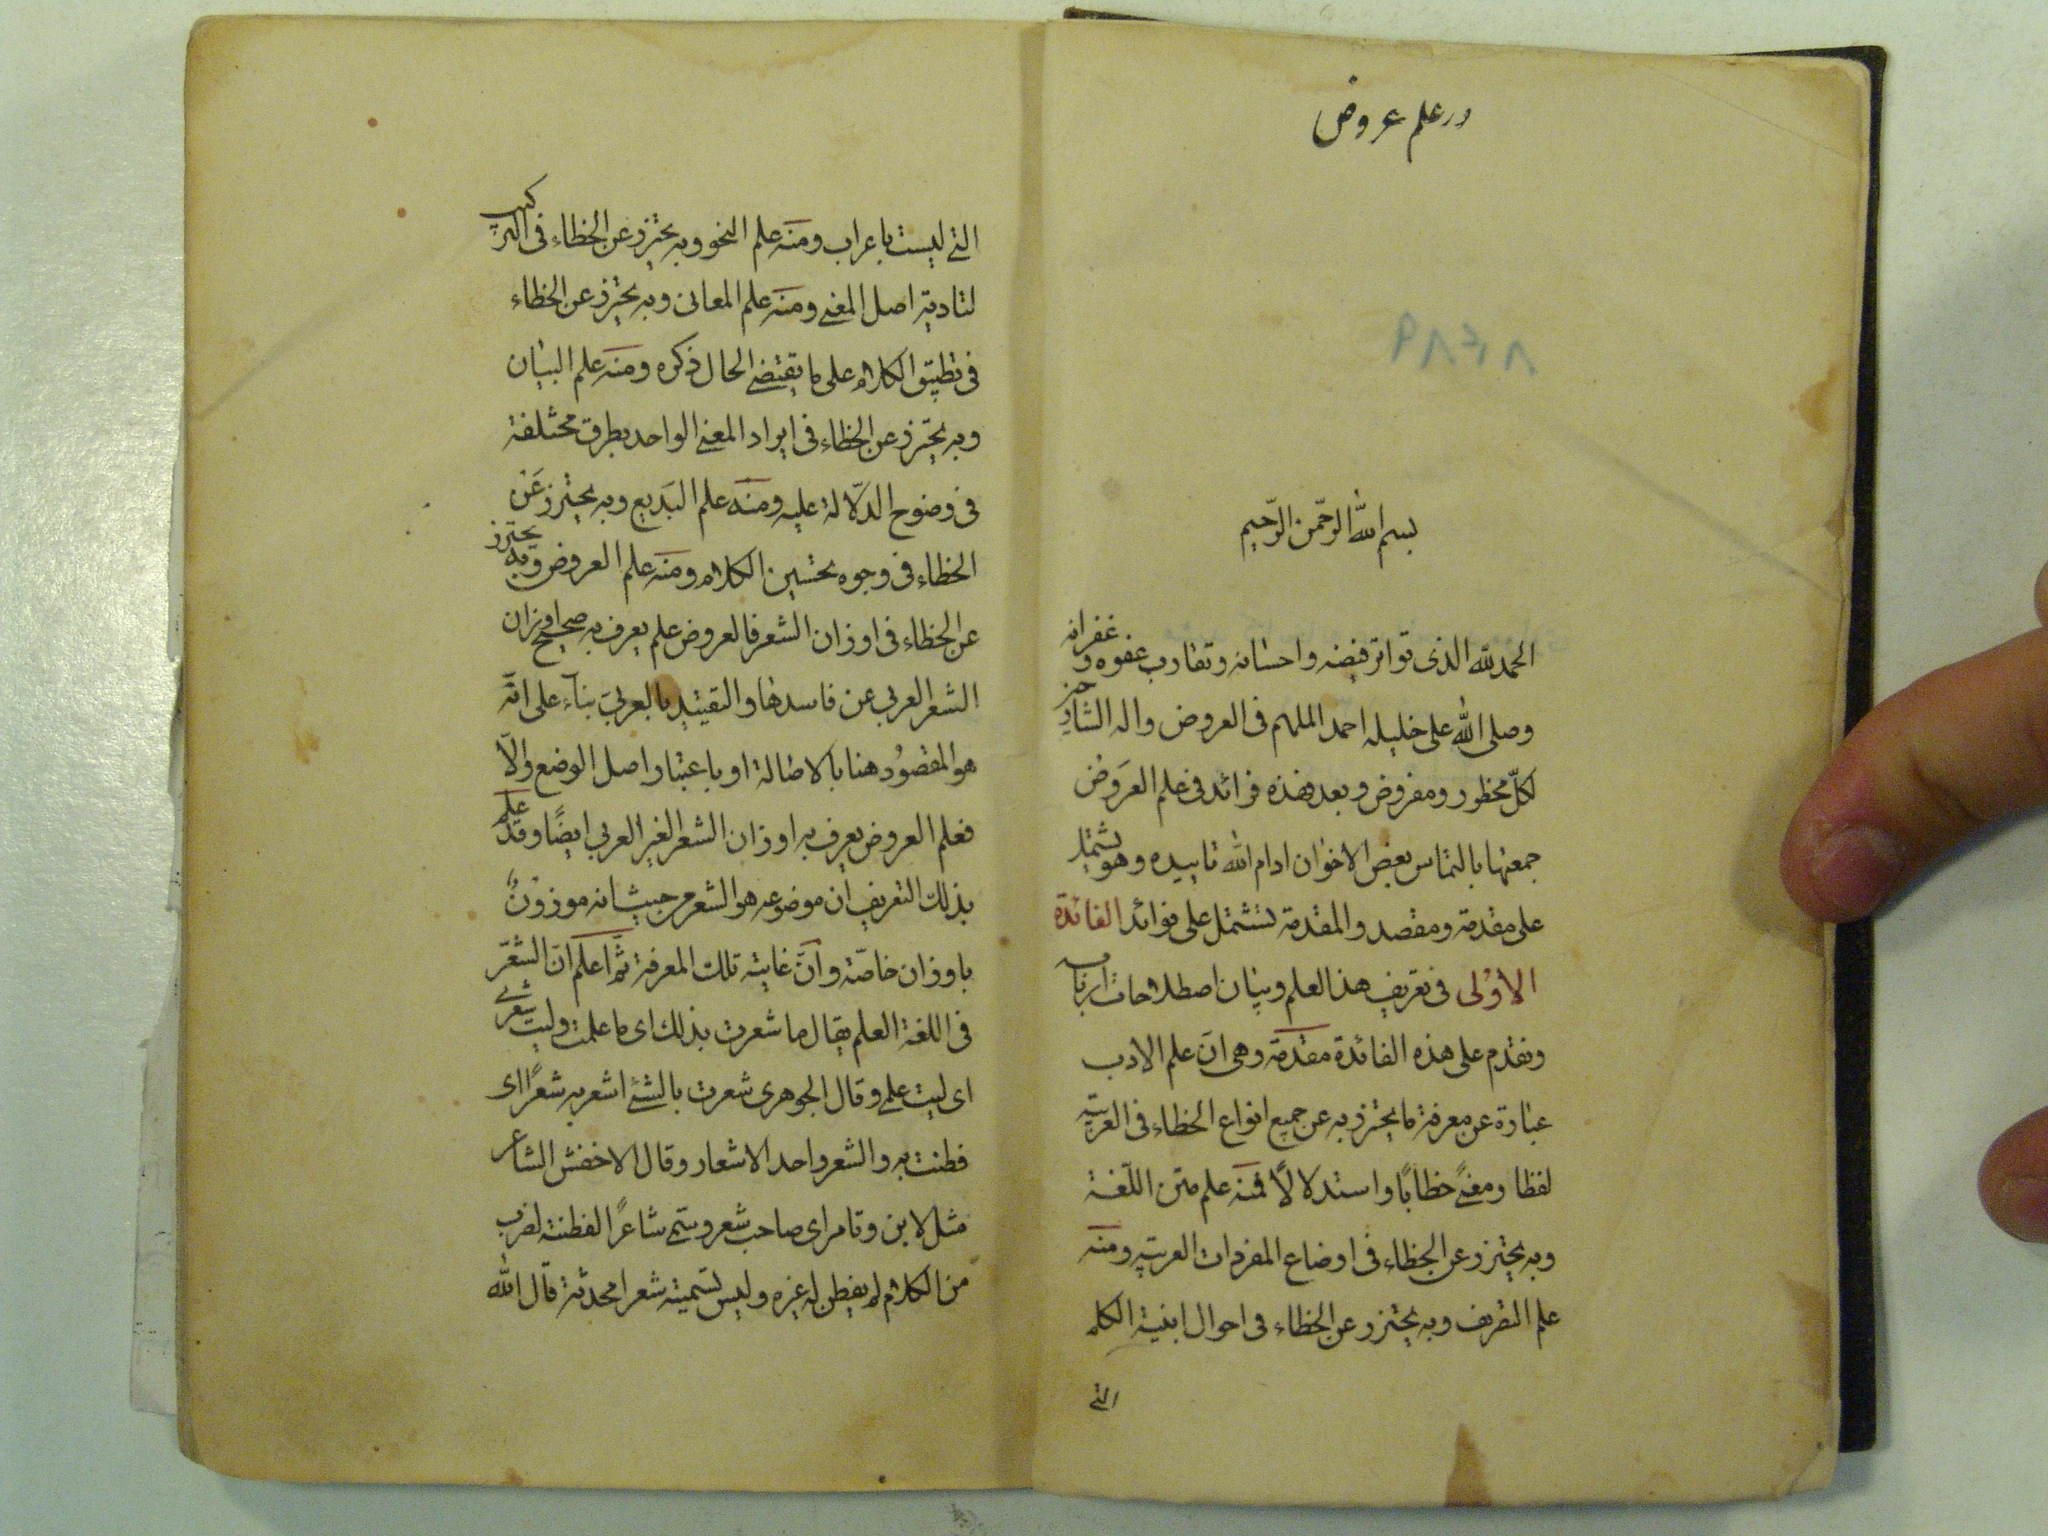 در علم عروض
بسم الله الرحمن الرحيم
الحمد لله الذى تواتر فيضه واحسانه وتقارب عفوه وغفرانه
وصلى الله على خليله احمد الملهم فى العروض واله
لكلّ محظور ومفروض وبعد فهذه فوائد فى علم العروض
جمعتها بالتماس بعض الاخوان ادام الله تاييده وهو يشتمل
على مقدمة ومقصد والمقدمة تشتمل على فوائد الفائدة
الاولى فى تعريف هذا العلم وبيان اصطلاحات ارباب
ونقدم على هذه الفائدة مقدمة وهى انّ علم الادب
عبارة عن معرفة ما يحترز به عن جميع انواع الخطاء فى العربية
لفظا ومعنىً خطابًا واستدلالًا فمنه علم متن اللّغة
وبه يحترز عن الخطاء فى اوضاع المفردات العربية ومنه
علم التصريف وبه يحترز عن الخطاء فى احوال ابنية الكلم
التى
التى ليست باعراب ومنه علم النحو وبه يحترز عن الخطاء فى التركيب
لتادية اصل المعنى ومنه علم المعانى وبه يحترز عن الخطاء
فى تطبيق الكلام على ما يقتضى الحال ذكره ومنه علم البيان
وبه يحترز عن الخطاء فى ايراد المعنى الواحد بطرق مختلفة
فى وضوح الدّلالة عليه ومنه علم البَديع وبه يحترز عَن
الخطاء فى وجوه تحسين الكلام ومنه علم العروض وبه يحترز
عن الخطاء فى اوزان الشعر فالعروض علم يعرف به صحيح اوزان
الشعر العربى عن فاسدها والتقييد بالعربىّ بنآء على انّه
هو المقصُود هنا بالاصالة او باعتبار اصل الوضع والّا
فعلم العروض يعرف به اوزان الشعر الغير العربى ايضًا وقد علم
بذلك التعريف ان موضوعه هو الشعر من حيث انه موزونٌ
باوزان خاصّة وانّ غايته تلك المعرفة ثمّ اعلم انّ الشعر
فى اللغة العلم يقال ما شعرت بذلك اى ما علمت وليت شعرى
اى ليت علمى وقال الجوهرى شعرت بالشئ اشعر به شعرًا اى
فطنت به والشعر واحد الاشعار وقال الاخفش الشاعر
مثل لابن وتامر اى صاحب شعر وسمّى شاعرًا لفطنته لضرب
من الكلام لم يفطن له غيره وليس تسميته شعرا محدثة قال الله